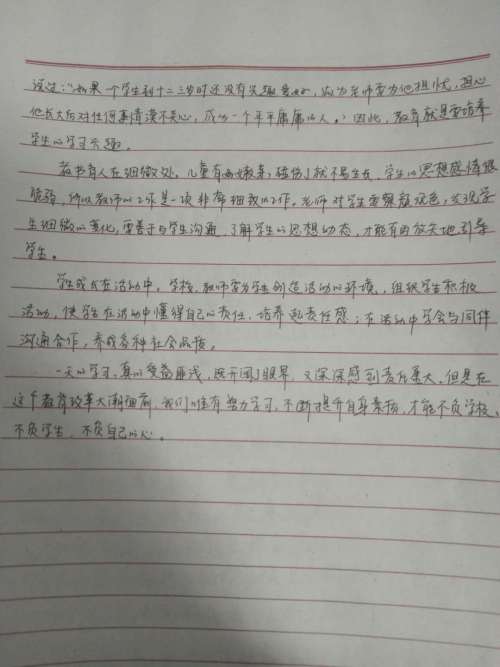 说过:"如果一个学生到十二三岁时还没有兴趣爱好,做为老师要为他担忧,担心
他长大后对任何事情漠不关心,成为一个平平庸庸的人。"因此,教育就是要培养
学生的学习兴趣。
教书育人在细微处。儿童有如嫩芽,碰伤了就不易生长,学生的思想感情很
脆弱,所以教师的工作是一项非常细致的工作。老师对学生要察颜观色,发现学
生细微的变化,要善于与学生沟通,了解学生的思想动态,才能有的放矢地引导
学生。
学生成长在活动中。学校、教师要为学生创造活动的环境,组织学生积极
活动,使学生在活动中懂得自己的责任,培养起责任感;在活动中学会与同伴
沟通合作,养成各种社会品质。
一天的学习,真的受益匪浅,既开阔了眼界,又深深感到责任重大。但是在
这个教育改革大潮面前,我们唯有努力学习,不断提升自身素质,才能不负学校、
不负学生、不负自己的心。